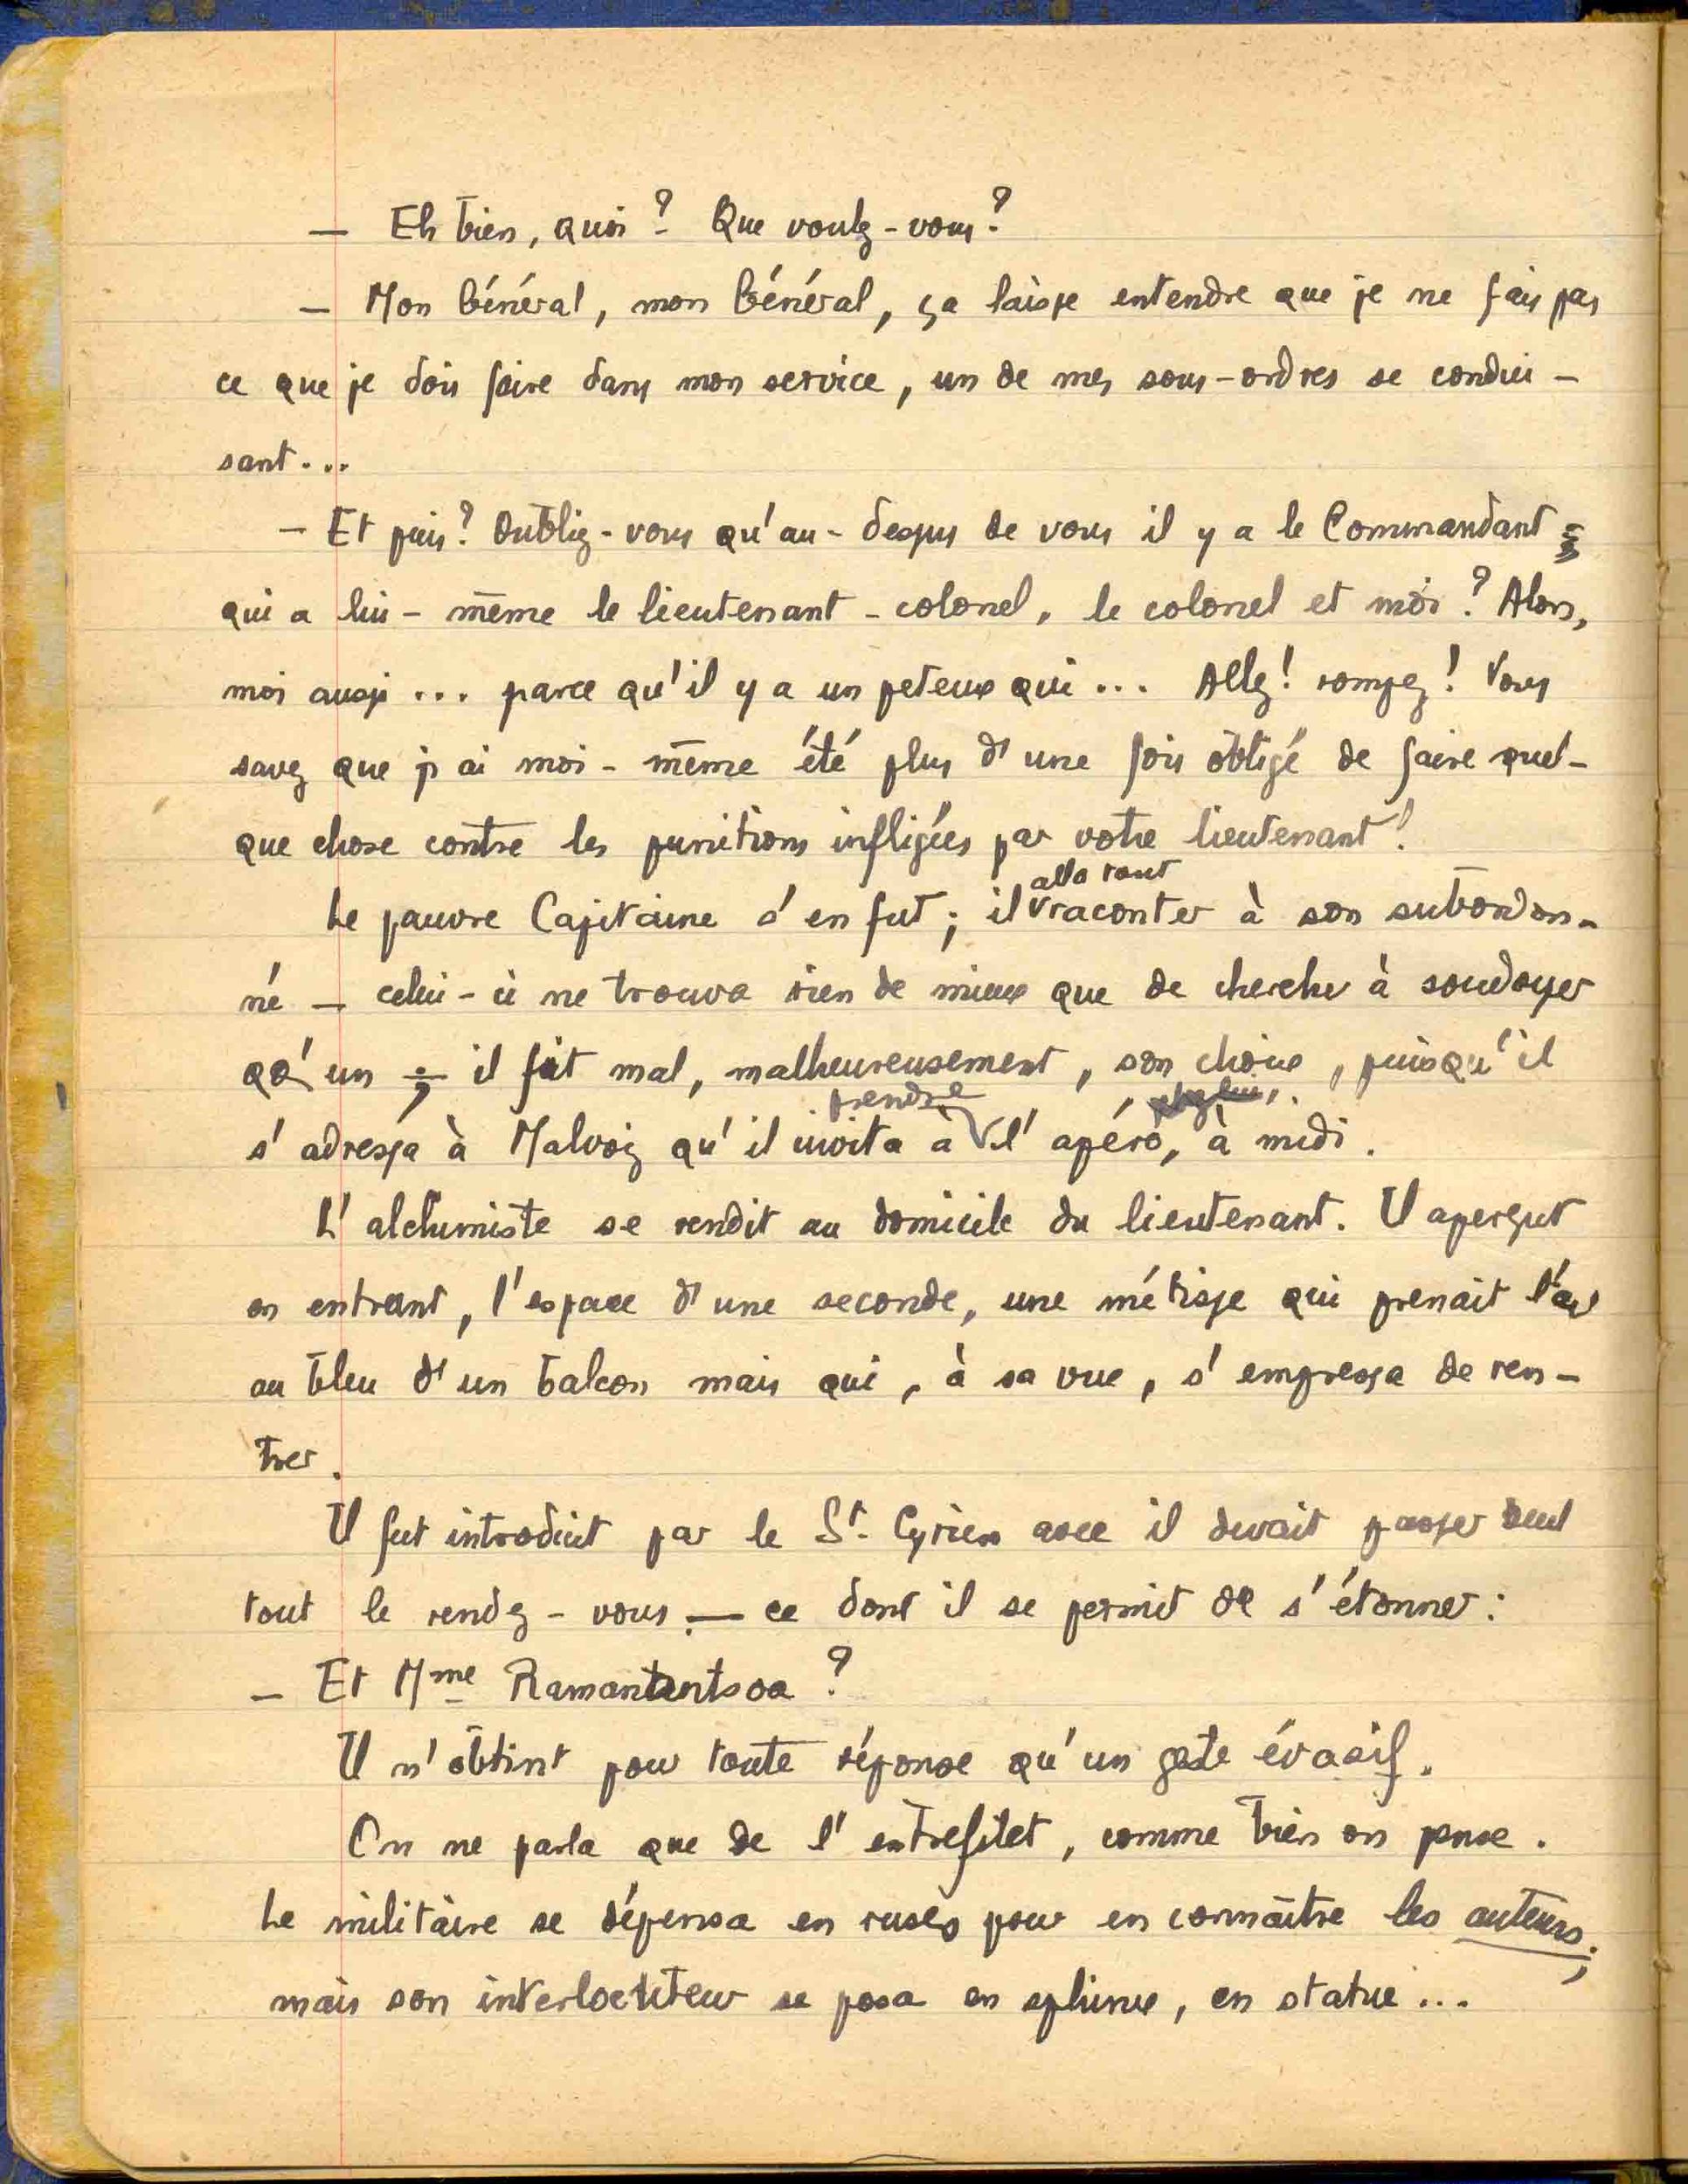 — Eh bien, quoi ? Que voulez-vous ?
— Mon Général, mon Général, ça laisse entendre que je ne fais pas
ce que je dois faire dans mon service, un de mes sous-ordres se condui-
sant...
— Et puis ? Oubliez-vous qu'au-dessus de vous il y a le Commandant
qui a lui-même le lieutenant-colonel, le colonel et moi ? Alors,
moi aussi ... parce qu'il y a un peteux qui ... Allez ! rompez ! Vous
savez que j'ai moi-même été plus d'une fois obligé de faire quel-
que chose contre les punitions infligées par votre lieutenant !
alla tout
Le pauvre Capitaine s'en fut ; il raconter à son subordon-
né — celui-ci ne trouva rien de mieux que de chercher à soudoyer
qq'un ; il fit mal, malheureusement, son choix, puisqu'il
prendre chez lui,
s'adressa à Malvoiz qu'il invita à l'apéro, à midi.
L'alchimiste se rendit au domicile du lieutenant. Il aperçut
en entrant, l'espace d'une seconde, une métisse qui prenait l'air
au bleu d'un balcon mais qui, à sa vue, s'empressa de ren-
trer.
Il fut introduit par le St-Cyrien avec il devait passer seul
tout le rendez-vous — ce dont il se permit de s'étonner :
— Et Mme Ramanantsoa ?
Il n'obtint pour toute réponse qu'un geste évasif.
On ne parla que de l'entrefilet, comme bien on pense.
Le militaire se dépensa en ruses pour en connaître les auteurs ;
mais son interlocuteur se posa en sphinx, en statue ...